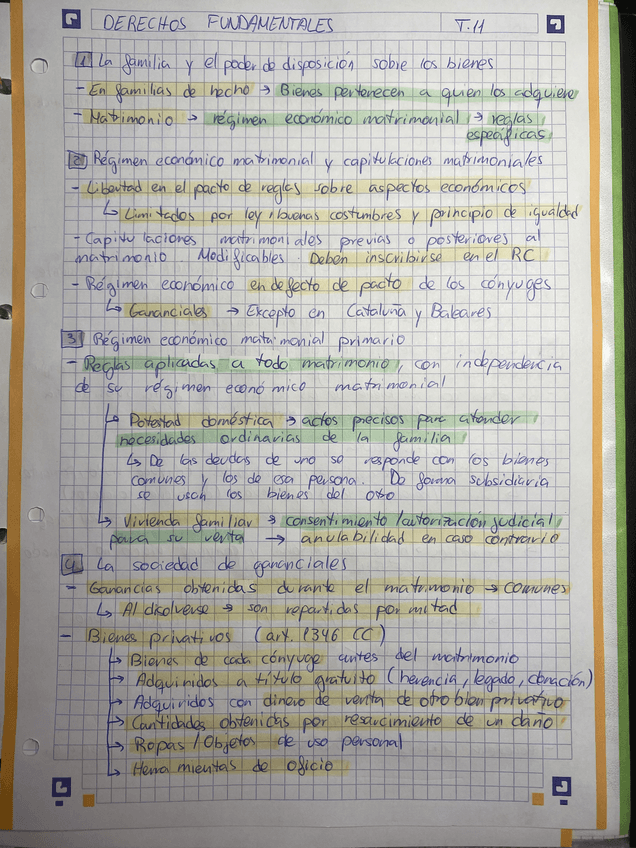 DERECHOS FUNDAMENTALES T.11
1 La familia y el poder de disposición sobre los bienes
- En familias de hecho → Bienes pertenecen a quien los adquiere
- Matrimonio → régimen económico matrimonial → reglas
específicas
2 Régimen económico matrimonial y capitulaciones matrimoniales
- Libertad en el pacto de reglas sobre aspectos económicos
↳ Limitados por ley, buenas costumbres y principio de igualdad
- Capitulaciones matrimoniales previas o posteriores al
matrimonio. Modificables. Deben inscribirse en el RC
- Régimen económico en defecto de pacto de los cónyuges
↳ Gananciales → Excepto en Cataluña y Baleares
3 Régimen económico matrimonial primario
- Reglas aplicadas a todo matrimonio, con independencia
de su régimen económico matrimonial
↳ Potestad doméstica → actos precisos para atender
necesidades ordinarias de la familia
↳ De las deudas de uno se responde con los bienes
comunes y los de esa persona. De forma subsidiaria
se usan los bienes del otro
↳ Vivienda familiar → consentimiento/autorización judicial
para su venta → anulabilidad en caso contrario
4 La sociedad de gananciales
- Ganancias obtenidas durante el matrimonio → comunes
↳ Al disolverse → son repartidas por mitad
- Bienes privativos (art. 1346 CC)
↳ Bienes de cada cónyuge antes del matrimonio
↳ Adquiridos a título gratuito (herencia, legado, donación)
↳ Adquiridos con dinero de venta de otro bien privativo
↳ Cantidades obtenidas por resarcimiento de un daño
↳ Ropas / Objetos de uso personal
↳ Herramientas de oficio